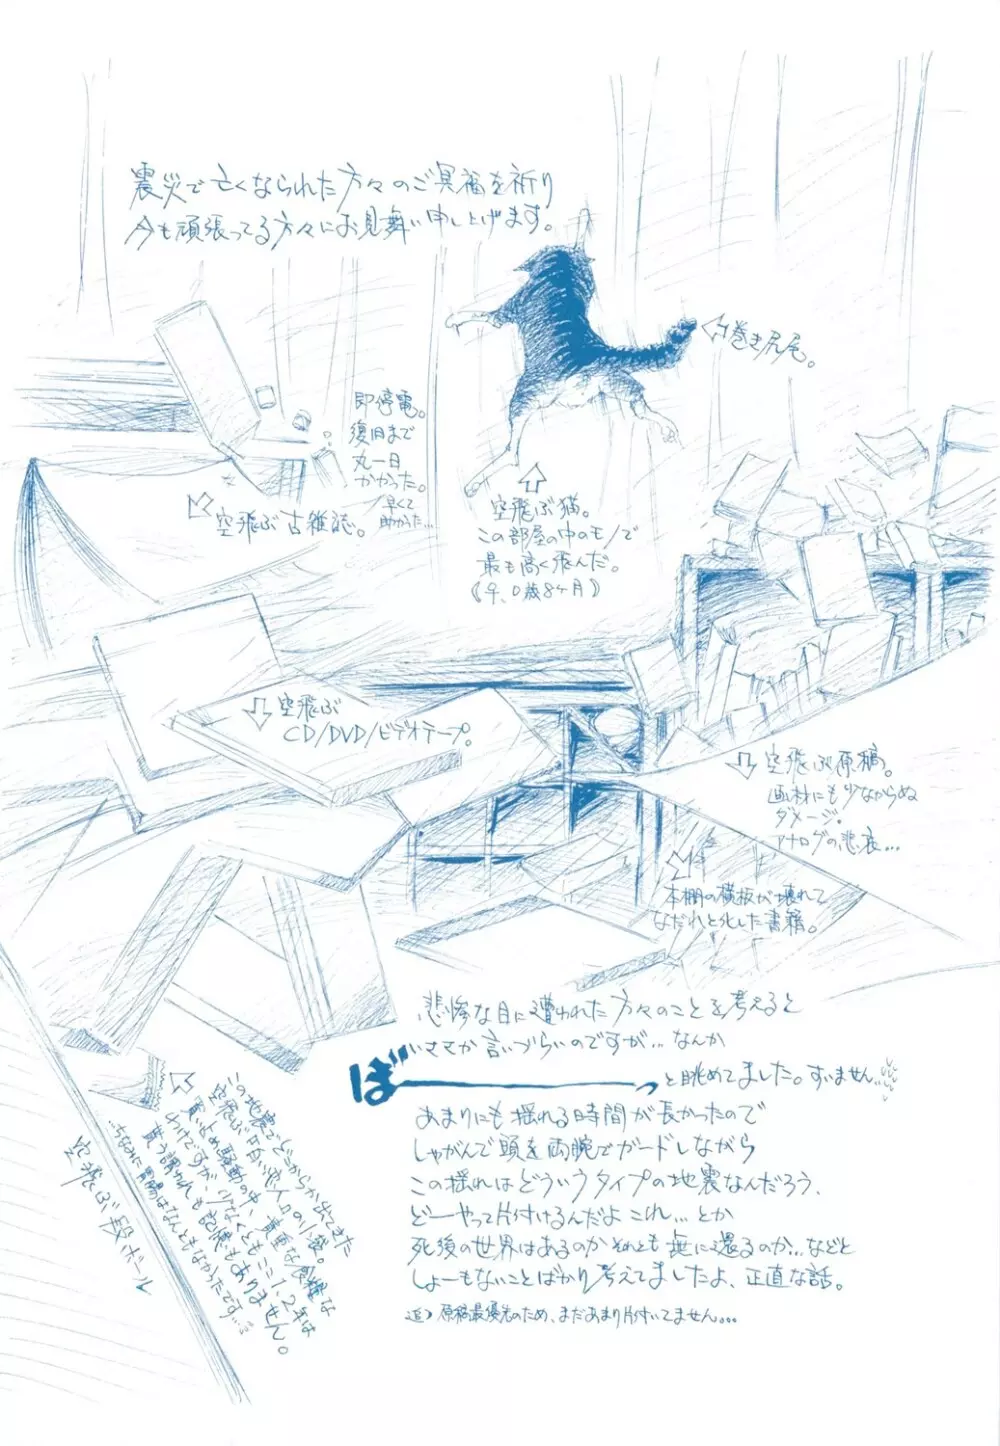 震災で亡くなられた方々のご冥福を祈り
今も頑張ってる方々にお見舞い申し上げます。
⇦巻き尻尾。
即停電。
復旧まで
丸一日
かかった。
早くて
助かった…
空飛ぶ古雑誌。
空飛ぶ猫。
この部屋の中のモノで
最も高く飛んだ。
《♀、0歳8ヶ月》
空飛ぶ
CD/DVD/ビデオテープ。
空飛ぶ原稿。
画材にも少なからぬ
ダメージ。
アナログの悲哀…
本棚の横板が壊れて
なだれと化した書籍。
悲惨な目に遭われた方々のことを考えると
言いづらいのですが…なんか
ぼーーーーっと眺めてました。すいません…
あまりにも揺れる時間が長かったので
しゃがんで頭を両腕でガードしながら
この揺れはどういうタイプの地震なんだろう、
どーやって片付けるんだよこれ…とか
死後の世界はあるのかそれとも無に還るのか…などと
しょーもないことばかり考えてましたよ、正直な話。
追）原稿最優先のため、まだあまり片付いてません…
この地震でどこからか出てきた
空飛ぶ白い恋人の小袋。
買い占め騒動の中、貴重な食糧な
わけですが、少なくともここ1、2年は
貰う謂われも記憶もありません。
…ちなみに胃腸はなんともなかったです…
空飛ぶ段ボール